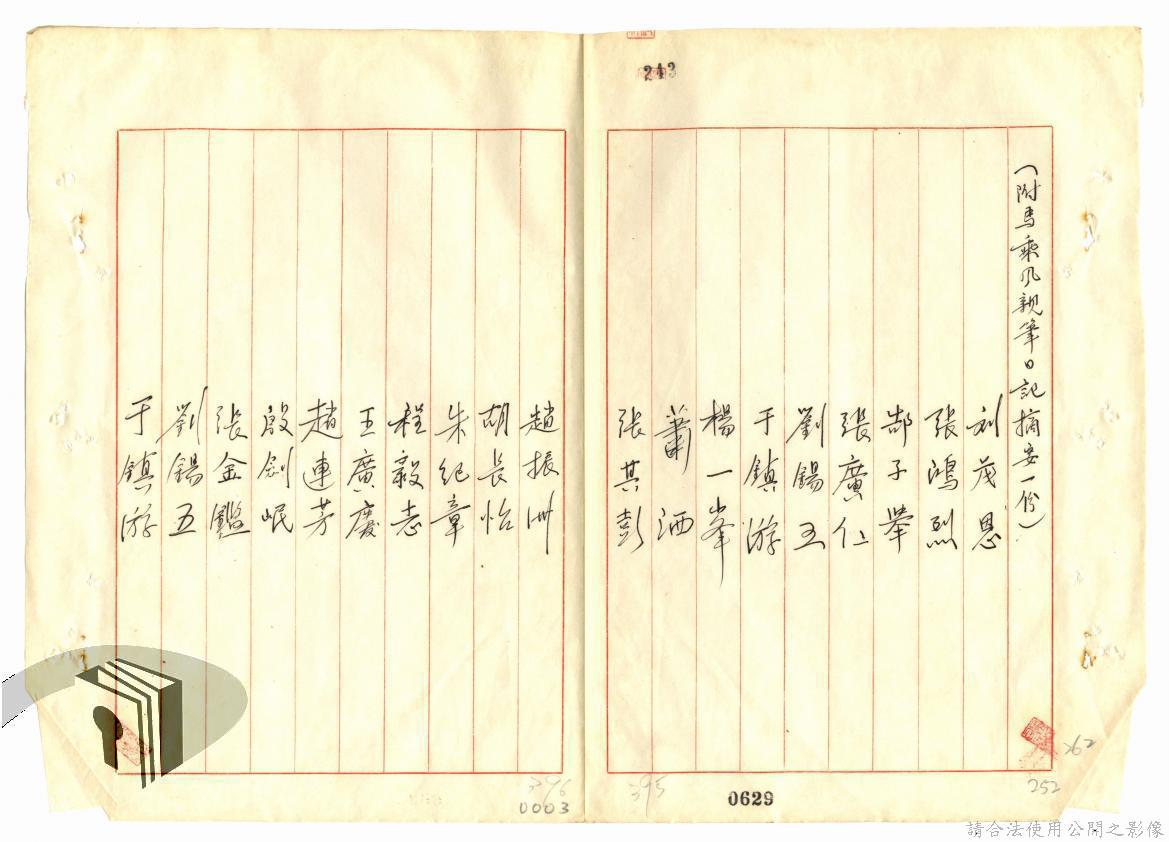 243
（附馬乘风親筆日記摘要一份）
刘茂恩
張鴻烈
郜子舉
張廣仁
劉錫五
于鎮游
楊一峯
蕭洒
張其彭
趙振洲
胡長怡
朱紀章
程毅志
王廣慶
趙連芳
殷劍岷
張金鑑
劉錫五
于鎮游
262
252
395
0629
396
0003
請合法使用公開之影像